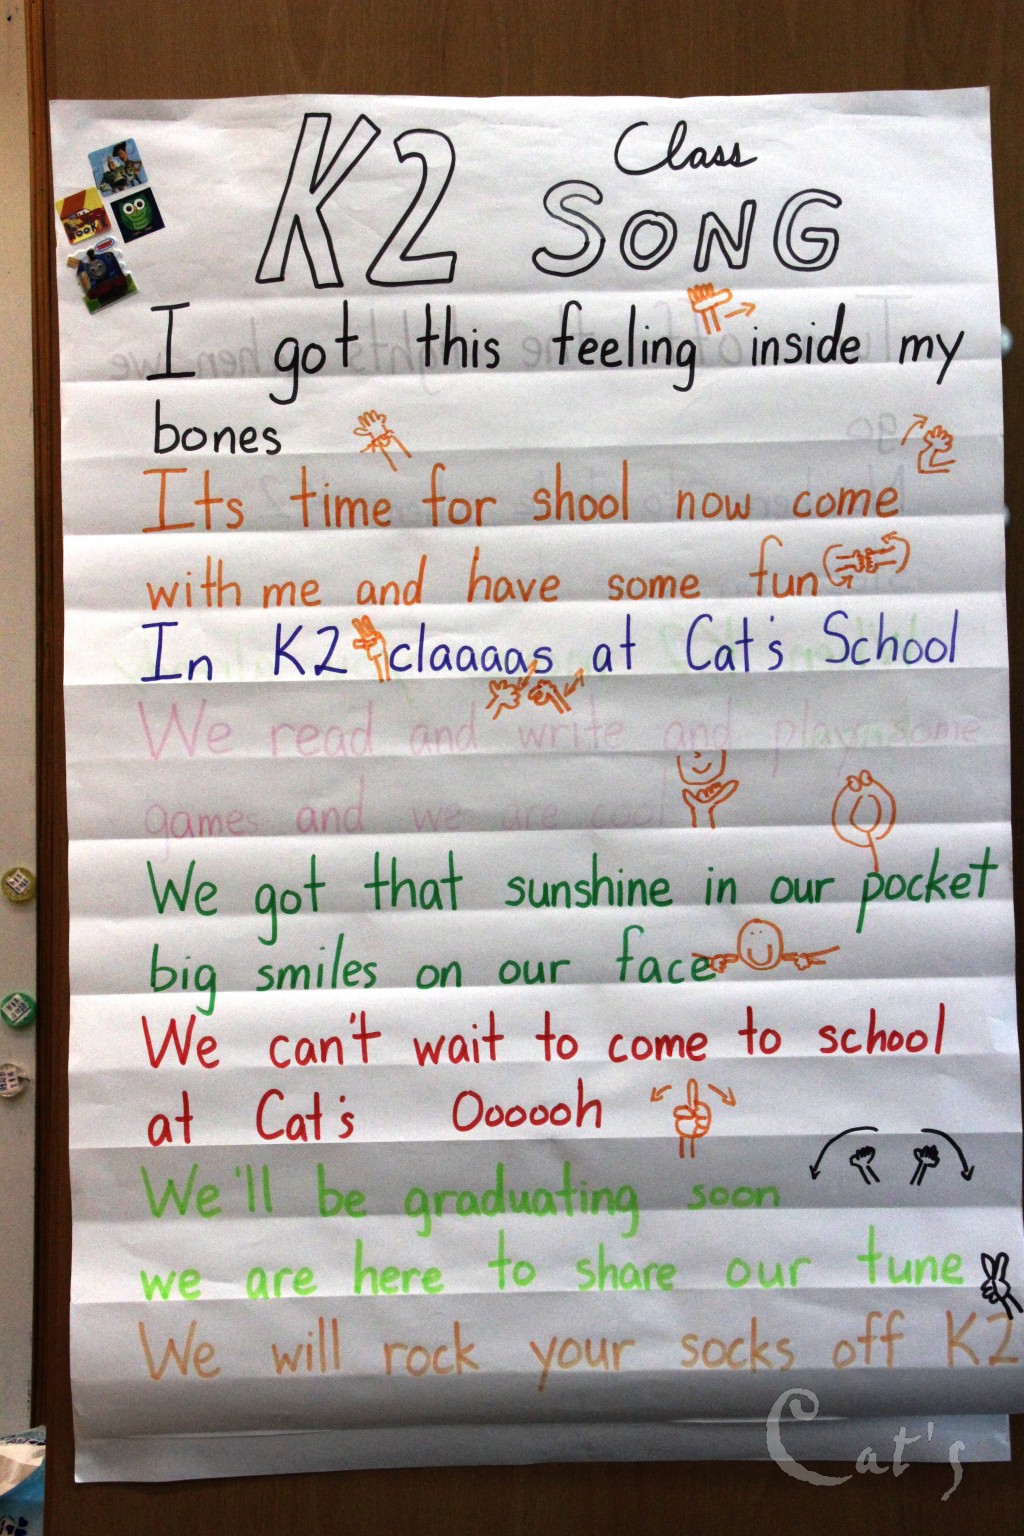 K2 Class
SONG
I got this feeling inside my
bones
Its time for shool now come
with me and have some fun
In K2 claaaas at Cat's School
We read and write and play some
games and we are cool
We got that sunshine in our pocket
big smiles on our face
We can't wait to come to school
at Cat's Oooooh
We'll be graduating soon
we are here to share our tune
We will rock your socks off K2
Cat's